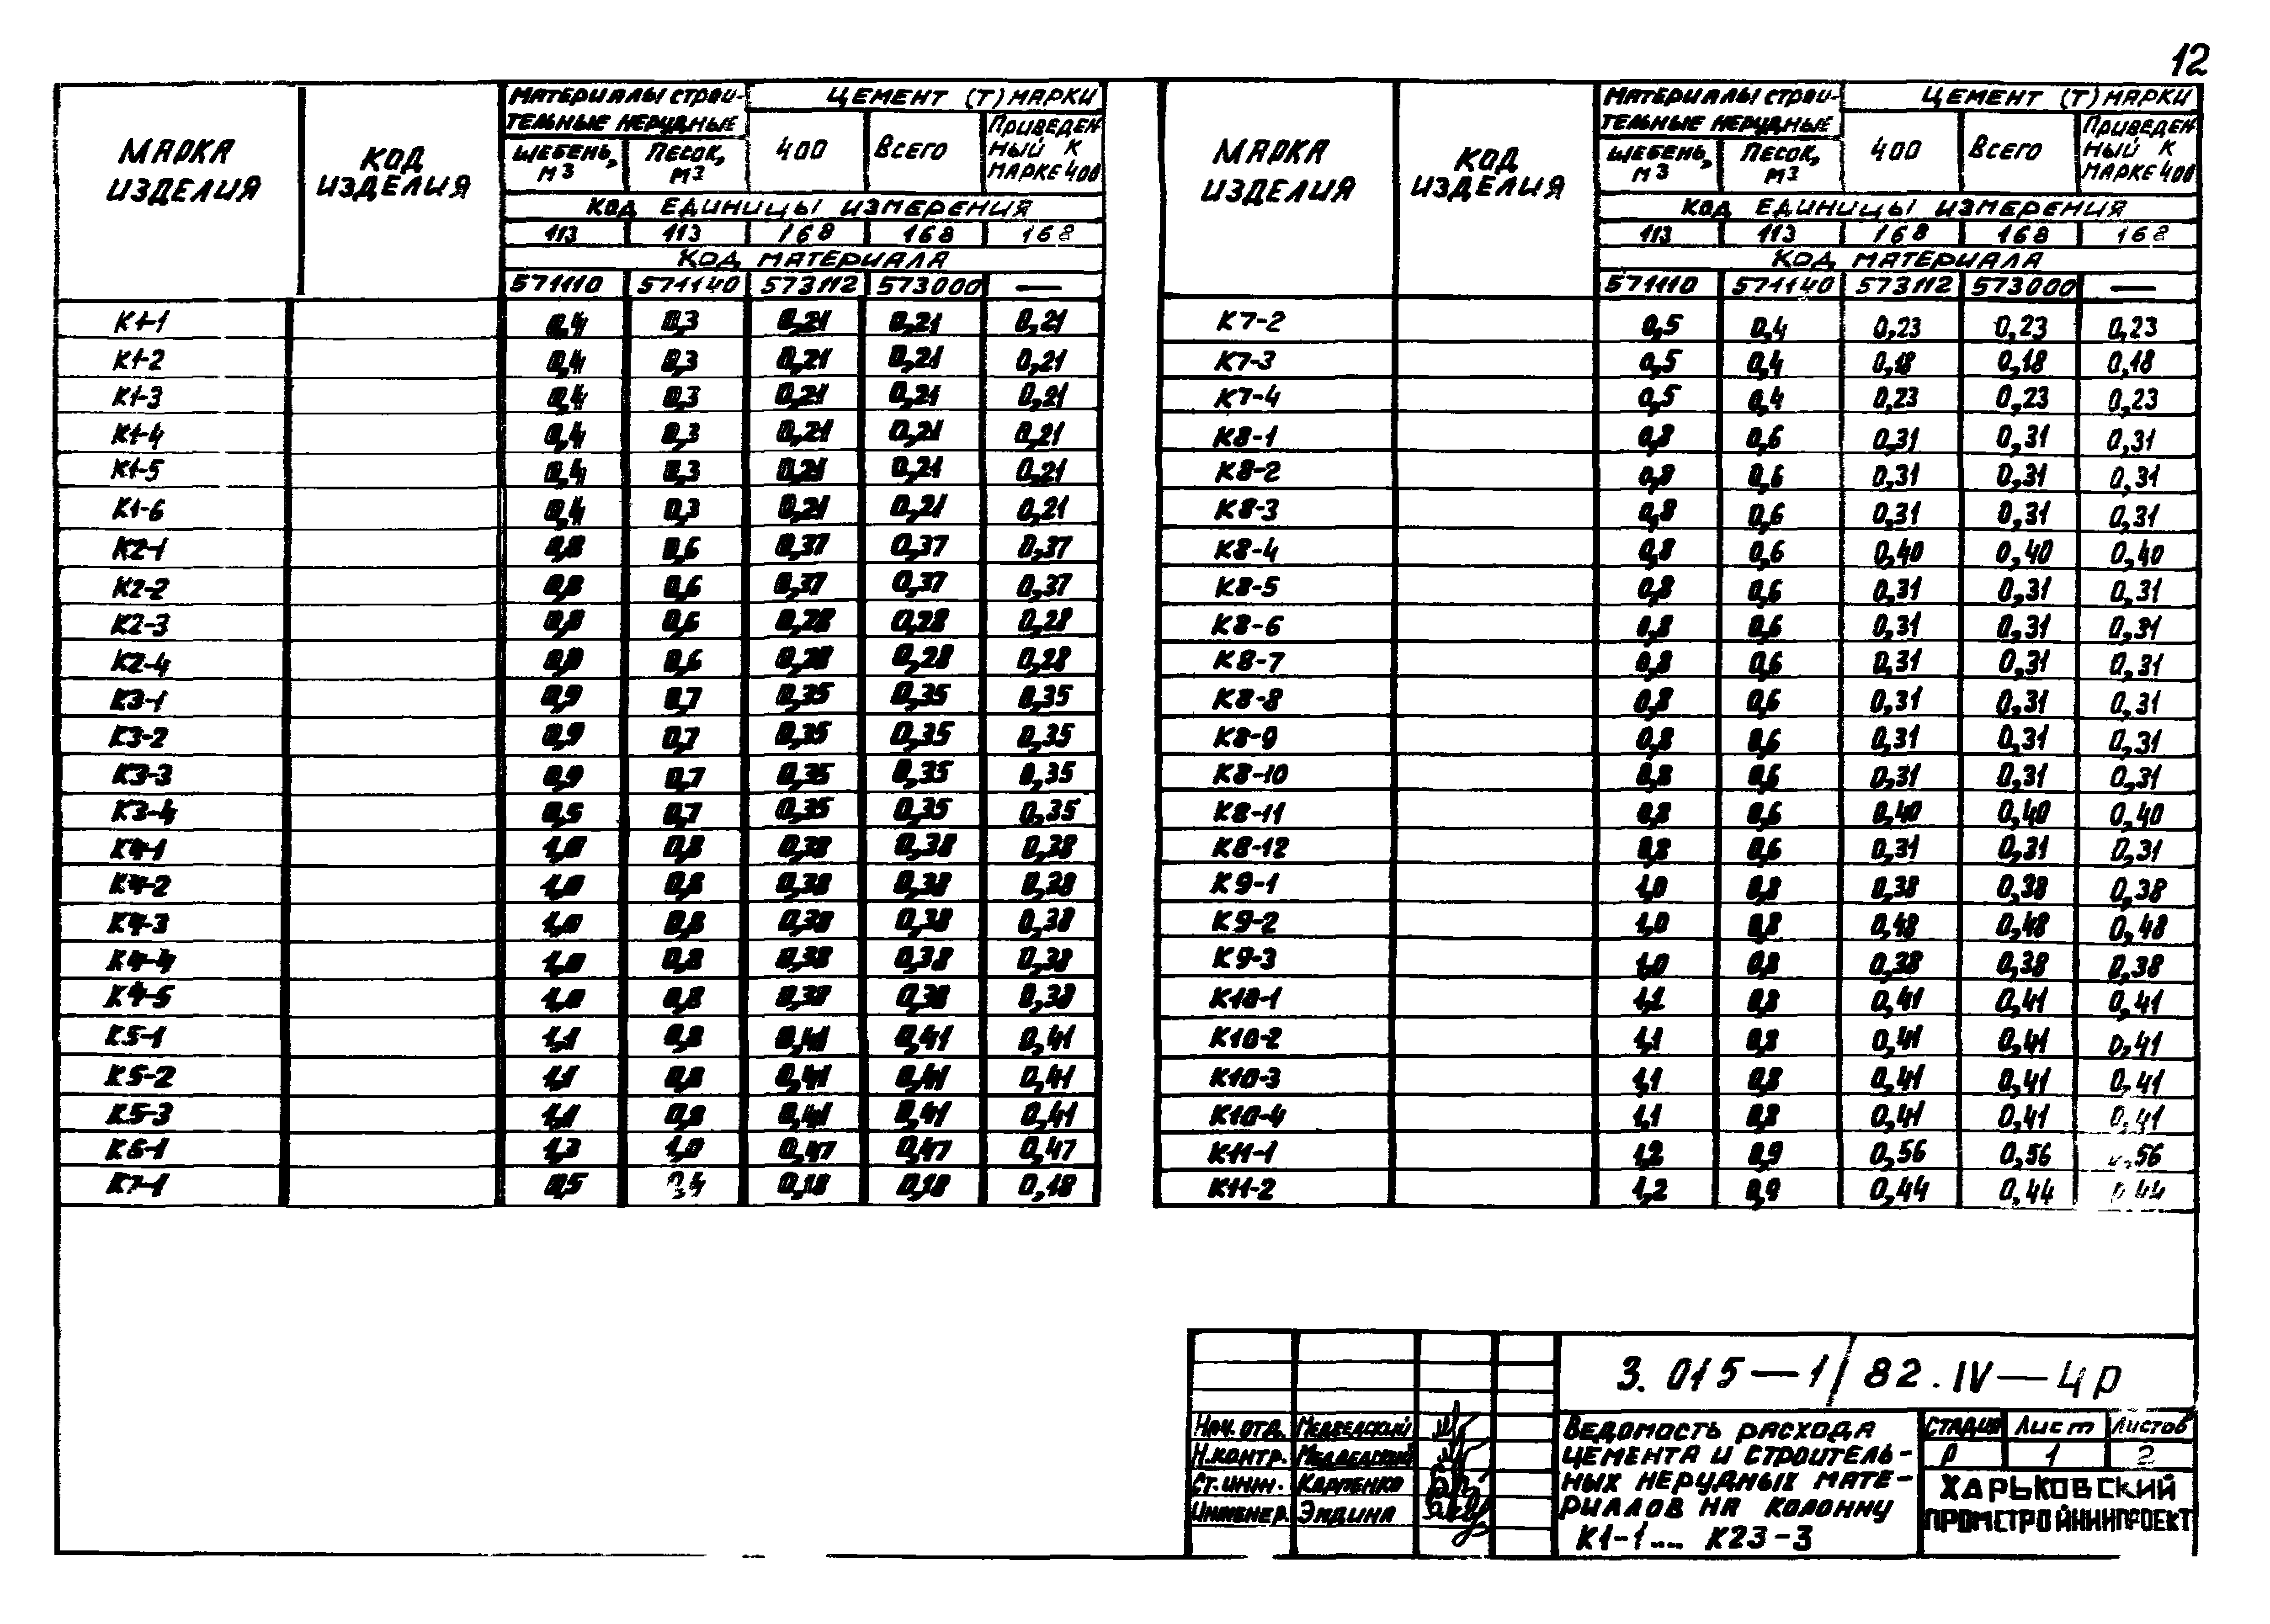 12
МАТЕРИАЛЫ СТРОИ- ЦЕМЕНТ (Т) МАРКИ
ТЕЛЬНЫЕ НЕРУДНЫЕ
МАРКА ИЗДЕЛИЯ КОД ИЗДЕЛИЯ ЩЕБЕНЬ, М3 ПЕСОК, М3 400 ВСЕГО ПРИВЕДЕН НЫЙ К МАРКЕ 400
КОД ЕДИНИЦЫ ИЗМЕРЕНИЯ
113 113 168 168 168
КОД МАТЕРИАЛА
571110 571140 573112 573000 —
К1-1 0,4 0,3 0,21 0,21 0,21
К1-2 0,4 0,3 0,21 0,21 0,21
К1-3 0,4 0,3 0,21 0,21 0,21
К1-4 0,4 0,3 0,21 0,21 0,21
К1-5 0,4 0,3 0,21 0,21 0,21
К1-6 0,4 0,3 0,21 0,21 0,21
К2-1 0,8 0,6 0,37 0,37 0,37
К2-2 0,8 0,6 0,37 0,37 0,37
К2-3 0,8 0,6 0,28 0,28 0,28
К2-4 0,8 0,6 0,28 0,28 0,28
К3-1 0,9 0,7 0,35 0,35 0,35
К3-2 0,9 0,7 0,35 0,35 0,35
К3-3 0,9 0,7 0,35 0,35 0,35
К3-4 0,7 0,35 0,35 0,35
К4-1 1,0 0,8 0,38 0,38 0,38
К4-2 1,0 0,8 0,38 0,38 0,38
К4-3 1,0 0,8 0,38 0,38 0,38
К4-4 1,0 0,8 0,38 0,38 0,38
К4-5 1,0 0,8 0,38 0,38 0,38
К5-1 1,1 0,8 0,41 0,41 0,41
К5-2 1,1 0,8 0,41 0,41 0,41
К5-3 1,1 0,8 0,41 0,41 0,41
К6-1 1,3 1,0 0,47 0,47 0,47
К7-1 0,5 0,4 0,18 0,18 0,18
МАТЕРИАЛЫ СТРОИ- ЦЕМЕНТ (Т) МАРКИ
ТЕЛЬНЫЕ НЕРУДНЫЕ
МАРКА ИЗДЕЛИЯ КОД ИЗДЕЛИЯ ЩЕБЕНЬ, М3 ПЕСОК, М3 400 ВСЕГО ПРИВЕДЕН НЫЙ К МАРКЕ 400
КОД ЕДИНИЦЫ ИЗМЕРЕНИЯ
113 113 168 168 168
КОД МАТЕРИАЛА
571110 571140 573112 573000 —
К7-2 0,5 0,4 0,23 0,23 0,23
К7-3 0,5 0,4 0,18 0,18 0,18
К7-4 0,5 0,4 0,23 0,23 0,23
К8-1 0,8 0,6 0,31 0,31 0,31
К8-2 0,8 0,6 0,31 0,31 0,31
К8-3 0,8 0,6 0,31 0,31 0,31
К8-4 0,8 0,6 0,40 0,40 0,40
К8-5 0,8 0,6 0,31 0,31 0,31
К8-6 0,8 0,6 0,31 0,31 0,31
К8-7 0,8 0,6 0,31 0,31 0,31
К8-8 0,8 0,6 0,31 0,31 0,31
К8-9 0,8 0,6 0,31 0,31 0,31
К8-10 0,8 0,6 0,31 0,31 0,31
К8-11 0,8 0,6 0,40 0,40 0,40
К8-12 0,8 0,6 0,31 0,31 0,31
К9-1 1,0 0,8 0,38 0,38 0,38
К9-2 1,0 0,8 0,48 0,48 0,48
К9-3 1,0 0,8 0,38 0,38 0,38
К10-1 1,1 0,8 0,41 0,41 0,41
К10-2 1,1 0,8 0,41 0,41 0,41
К10-3 1,1 0,8 0,41 0,41 0,41
К10-4 1,1 0,8 0,41 0,41 0,41
К11-1 1,2 0,9 0,56 0,56 0,56
К11-2 1,2 0,9 0,44 0,44 0,44
3.015—1/82.IV—4р
НАЧ. ОТД. МЕДВЕДСКИЙ
Н.КОНТР. МЕДВЕДСКИЙ
СТ.ИНЖ. КАРПЕНКО
ИНЖЕНЕР. ЭНДИНА
ВЕДОМОСТЬ РАСХОДА
ЦЕМЕНТА И СТРОИТЕЛЬ-
НЫХ НЕРУДНЫХ МАТЕ-
РИАЛОВ НА КОЛОННУ
К1-1.... К23-3
СТАДИЯ Лист Листов
Р 1 2
ХАРЬКОВСКИЙ
ПРОМСТРОЙНИИПРОЕКТ